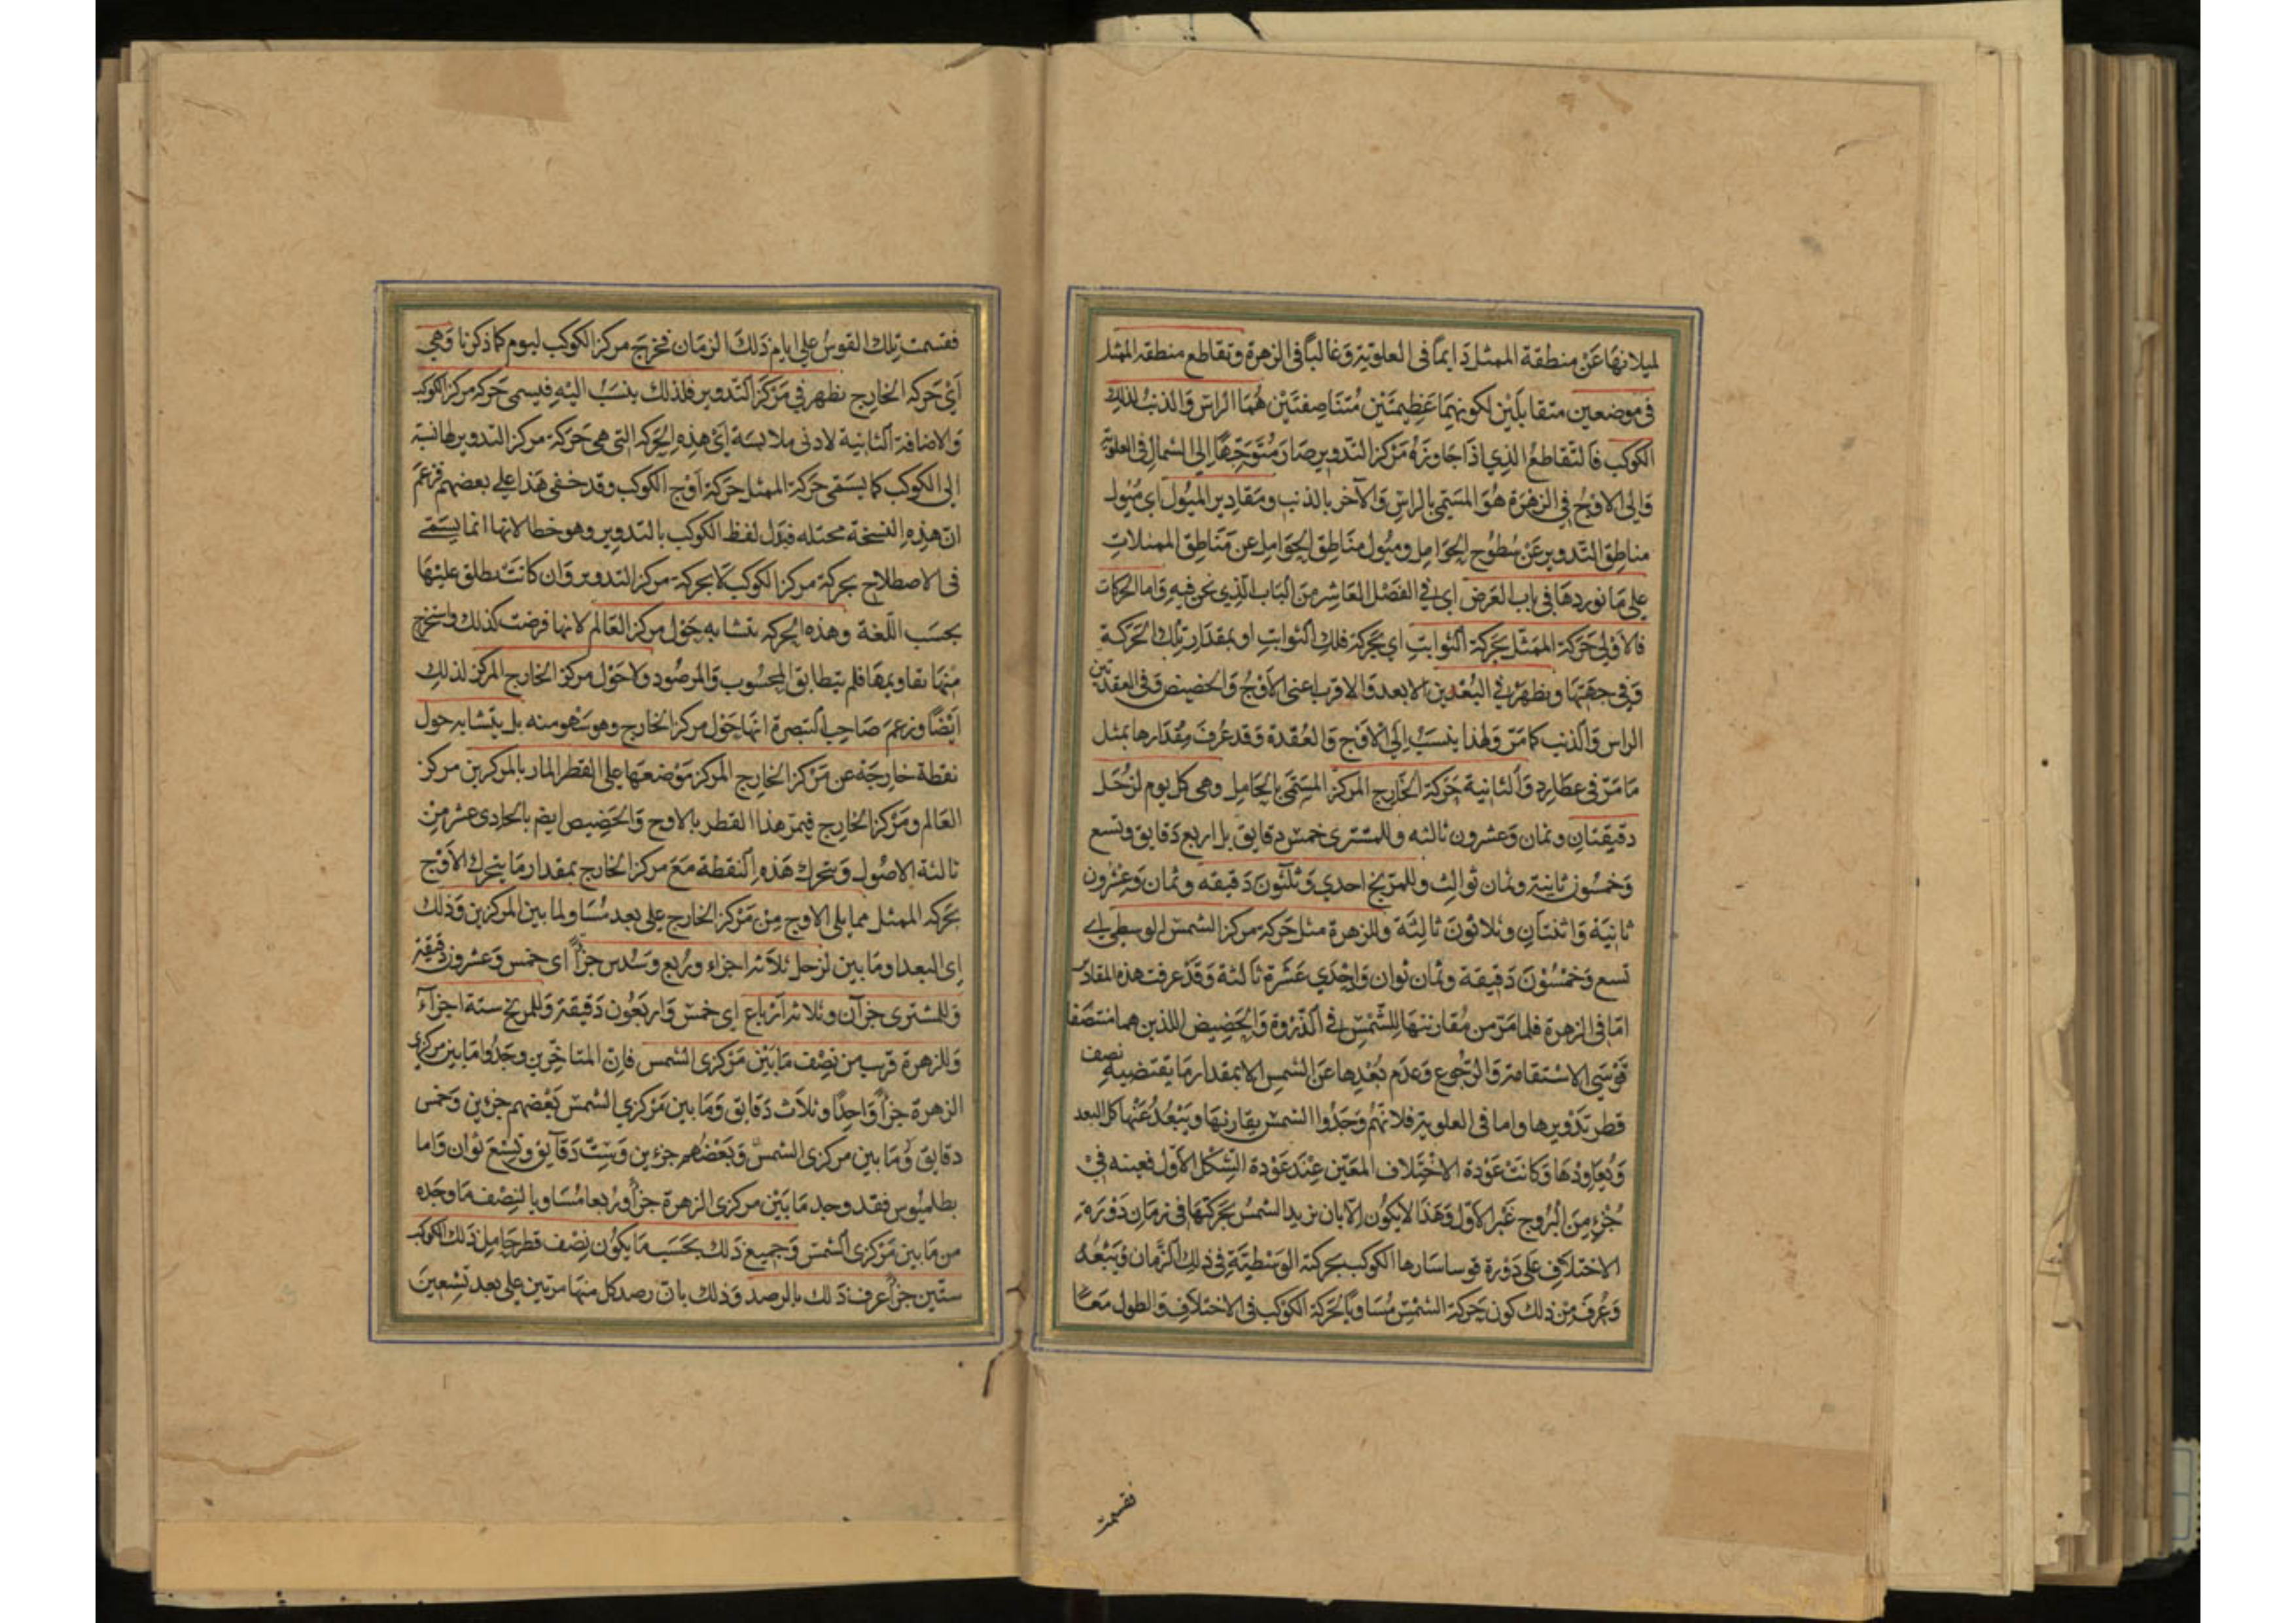 لميلانها عن منطقة الممثل دايماً فى العلوية وغالباً فى الزهرة وتقاطع منطقة الممثل
فى موضعين متقابلين لكونهما عظيمتين متناصفتين هما الراس والذنب لذلك
الكوكب فالتقاطع الذي اذا جاوزه مركز التدوير صار متوجهاً الى الشمال فى العلوية
والى الاوج في الزهرة هو المسمى بالراس والآخر بالذنب ومقادير الميول اي ميول
مناطق التدوير عن سطوح الحوامل وميول مناطق الحوامل عن مناطق الممثلات
على ما نوردها فى باب العرض اى في الفصل العاشر من الباب الذي نحن فيه واما الحركات
فالاولى حركة الممثل بحركة الثوابت اي بحركة فلك الثوابت او بمقدار تلك الحركة
وفي جهتها ويظهر في البعدين الابعد والاقرب اعنى الاوج والحضيض وفى العقدتين
الراس والذنب كما مر ولهذا ينسب الى الاوج والعقدة وقد عرف مقدارها بمثل
ما مر فى عطارد والثانية حركة الخارج المركز المسمى بالحامل وهى كل يوم لزحل
دقيقتان وثمان وعشرون ثالثه وللمشترى خمس دقايق بل اربع دقايق وتسع
وخمسون ثانية وثمان ثوالث وللمريخ احدي وثلثون دقيقه وثمان وعشرون
ثانية واثنتان وثلاثون ثالثة وللزهرة مثل حركة مركز الشمس الوسطى اى
تسع وخمسون دقيقة وثمان ثوان واحدي عشرة ثالثة وقد عرفت هذه المقادير
امّا فى الزهرة فلما مر من مقارنتها للشمس في الذروة والحضيض اللذين هما منتصفا
قوسي الاستقامة والرجوع وعدم بعدها عن الشمس الا بمقدار ما يقتضيه نصف
قطر تدويرها واما فى العلوية فلانهم وجدوا الشمس يقارنها ويبعد عنها كل البعد
ويعاودها وكانت عودة الاختلاف المعين عند عودة الشكل الاول فعينه في
جزء من البروج غير الاول وهذا لا يكون الا بان يزيد الشمس بحركتها فى زمان دورة
الاختلاف على دورة قوسا سارها الكوكب بحركته الوسطية فى ذلك الزمان ويتبعه
وعرف من ذلك كون حركة الشمس مساوياً لحركة الكوكب فى الاختلاف والطول معاً
فقسمت
فقسمت تلك القوس على ايام ذلك الزمان فخرج مركز الكوكب ليوم كما ذكرنا وهى
اي حركة الخارج يظهر في مركز التدوير فلذلك ينسب اليه فيسمى حركة مركز الكوكب
والاضافة الثانية لادنى ملابسة اي هذه الحركة التى هى حركة مركز التدوير لها نسبة
الى الكوكب كما يسمى حركة الممثل حركة اوج الكوكب وقد خفى هذا على بعضهم فزعم
ان هذه النسخة مختله فبدل لفظ الكوكب بالتدوير وهو خطا لانها انما يسمى
فى الاصطلاح بحركة مركز الكوكب لا بحركة مركز التدوير وان كانت يطلق عليها
بحسب اللغة وهذه الحركه يتشابه حول مركز العالم لانها فرضت كذلك واستخرج
منها تقاويمها فلم يتطابق المحسوب والمرصود ولا حول مركز الخارج المركز لذلك
ايضاً وزعم صاحب التبصرة انها حول مركز الخارج وهو سهو منه بل يتشابه حول
نقطة خارجة عن مركز الخارج المركز موضعها على القطر المار بالمركزين مركز
العالم ومركز الخارج فيمر هذا القطر بالاوج والحضيض ايضا بالحادى عشر من
ثالثة الاصول وتتحرك هذه النقطة مع مركز الخارج بمقدار ما يتحرك الاوج
بحركة الممثل مما يلى الاوج من مركز الخارج على بعد مساو لما بين المركزين وذلك
اى البعد او ما بين لزحل ثلاثة اجزاء وربع وسدس جزأ اى خمس وعشرون دقيقة
وللمشترى جزآن وثلاثة ارباع اي خمس واربعون دقيقة وللمريخ ستة اجزآء
وللزهرة قريب من نصف ما بين مركزى الشمس فان المتاخرين وجدوا ما بين مركزى
الزهرة جزأ واحداً وثلاث دقايق وما بين مركزي الشمس بعضهم جزءين وخمس
دقايق وما بين مركزى الشمس وبعضهم جزءين وست دقايق وتسع ثوان واما
بطلميوس فقد وجد ما بين مركزى الزهرة جزأ وربعا مساويا لنصف ما وجده
من ما بين مركزى الشمس وجميع ذلك بحسب ما يكون نصف قطر حامل ذلك الكوكب
ستين جزأ عرف ذلك بالرصد وذلك بان رصد كل منها مرتين على بعد تسعين